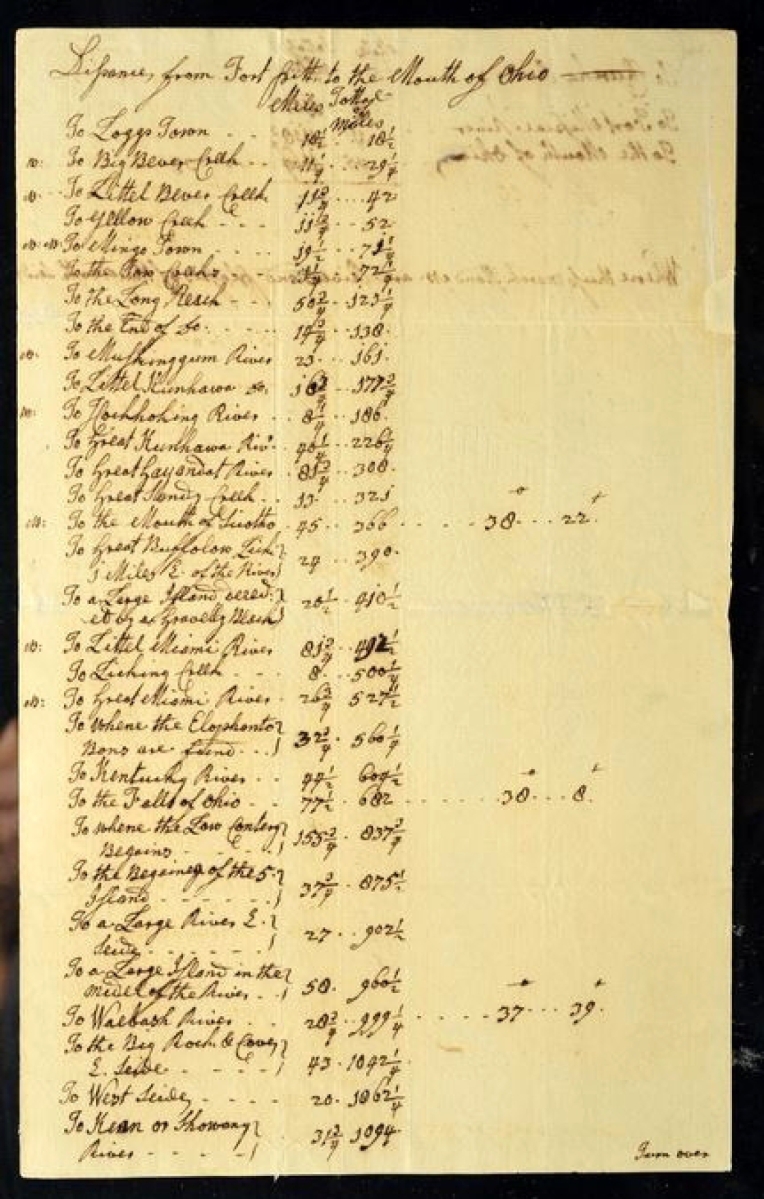 Distance, from Fort Pitt to the Mouth of Ohio
Miles Total of Miles
To Loggs Town - - 18½ - 18½
w: To Big Bever Creek - 11¼ - 29¼
w. To Littel Bever Creek 12¾ .... 42
To Yellow Creek - - - 11¾ ... 52
w. w. To Mingo Town - - - 19½ ... 71¼
To the Tow Creeks - - 72¼
To the Long Reach - - - 50¾ .. 123¼
To the End of Do. - - - 14¾ .. 138.
w. To Muskinggum River 23 ... 161.
To Littel Kunhawa Do. 16¾ ... 177¾
w: To Hockhoking River .. 8¼ ... 186.
To Great Kunhawa Riv. .. 40¼ .. 226¼
To Great Guyandot River . 81¾ .. 308.
To Great Sandy Creek .. 13 ... 321
w: To the Mouth of Scioto . 45 .. 366 - - - - 38° ... 22'.
To Great Buffolow Lick
1 Miles E. of the River 24 .. 390.
To a Large Island
by a Gravelly Beach 20½ . 410½
w: To Littel Miami River 81¾ . 492½
To Licking Creek - - - 8 ... 500¼
w: To Great Miami River . 26¾ 527½
To where the Elephants
Bons are fund ... 32¾ . 560¼
To Kentucky River .. 44½ 604½
To the Falls of Ohio .. 77½ . 682 - - - - 38° ... 8'.
To where the Low Contery
Begains - - - 155¾ . 837¾
To the Begaining of the 5
Island - - - - 37¾ . 875½
To a Large River E.
Seide - - - - 27 .. 902½
To a Large Island in the
Midel of the River .. 58. 960½
To Waebash River .. 38¾ .. 999¼ - - - - 37° ... 39'.
To the Big Rock & Cove,
E. Seide - - - - 43. 1042¼
To West Seide, - - - - 20. 1062¼
To Kean or Showany
River - - - - 31¾ 1094.
Turn over